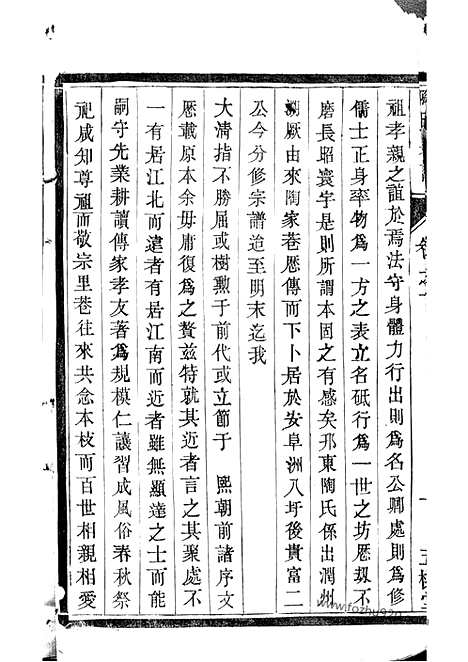 祖孝親之誼於焉法守身體力行出則爲名公卿處則爲修
儒士正身率物爲一方之表立名砥行爲一世之坊歷刼不
磨長昭寰宇是則所謂本固之有感矣邗東陶氏係出潤州
溯厥由來陶家巷歷傳而下卜居於安阜洲八圩後貴富二
公今分修宗譜造至明末迄我
大淸指不勝屈或樹勳于前代或立節于 熙朝前諸序文
歷載原本余毋庸復爲之贅兹特就其近者言之其聚處不
一有居江北而遠者有居江南而近者雖無顯達之士而能
嗣守先業耕讀傳家孝友著爲規模仁讓習成風俗春秋祭
祀咸知尊祖而敬宗里巷往來共念本枝而百世相親相愛
www.fozhu920.com